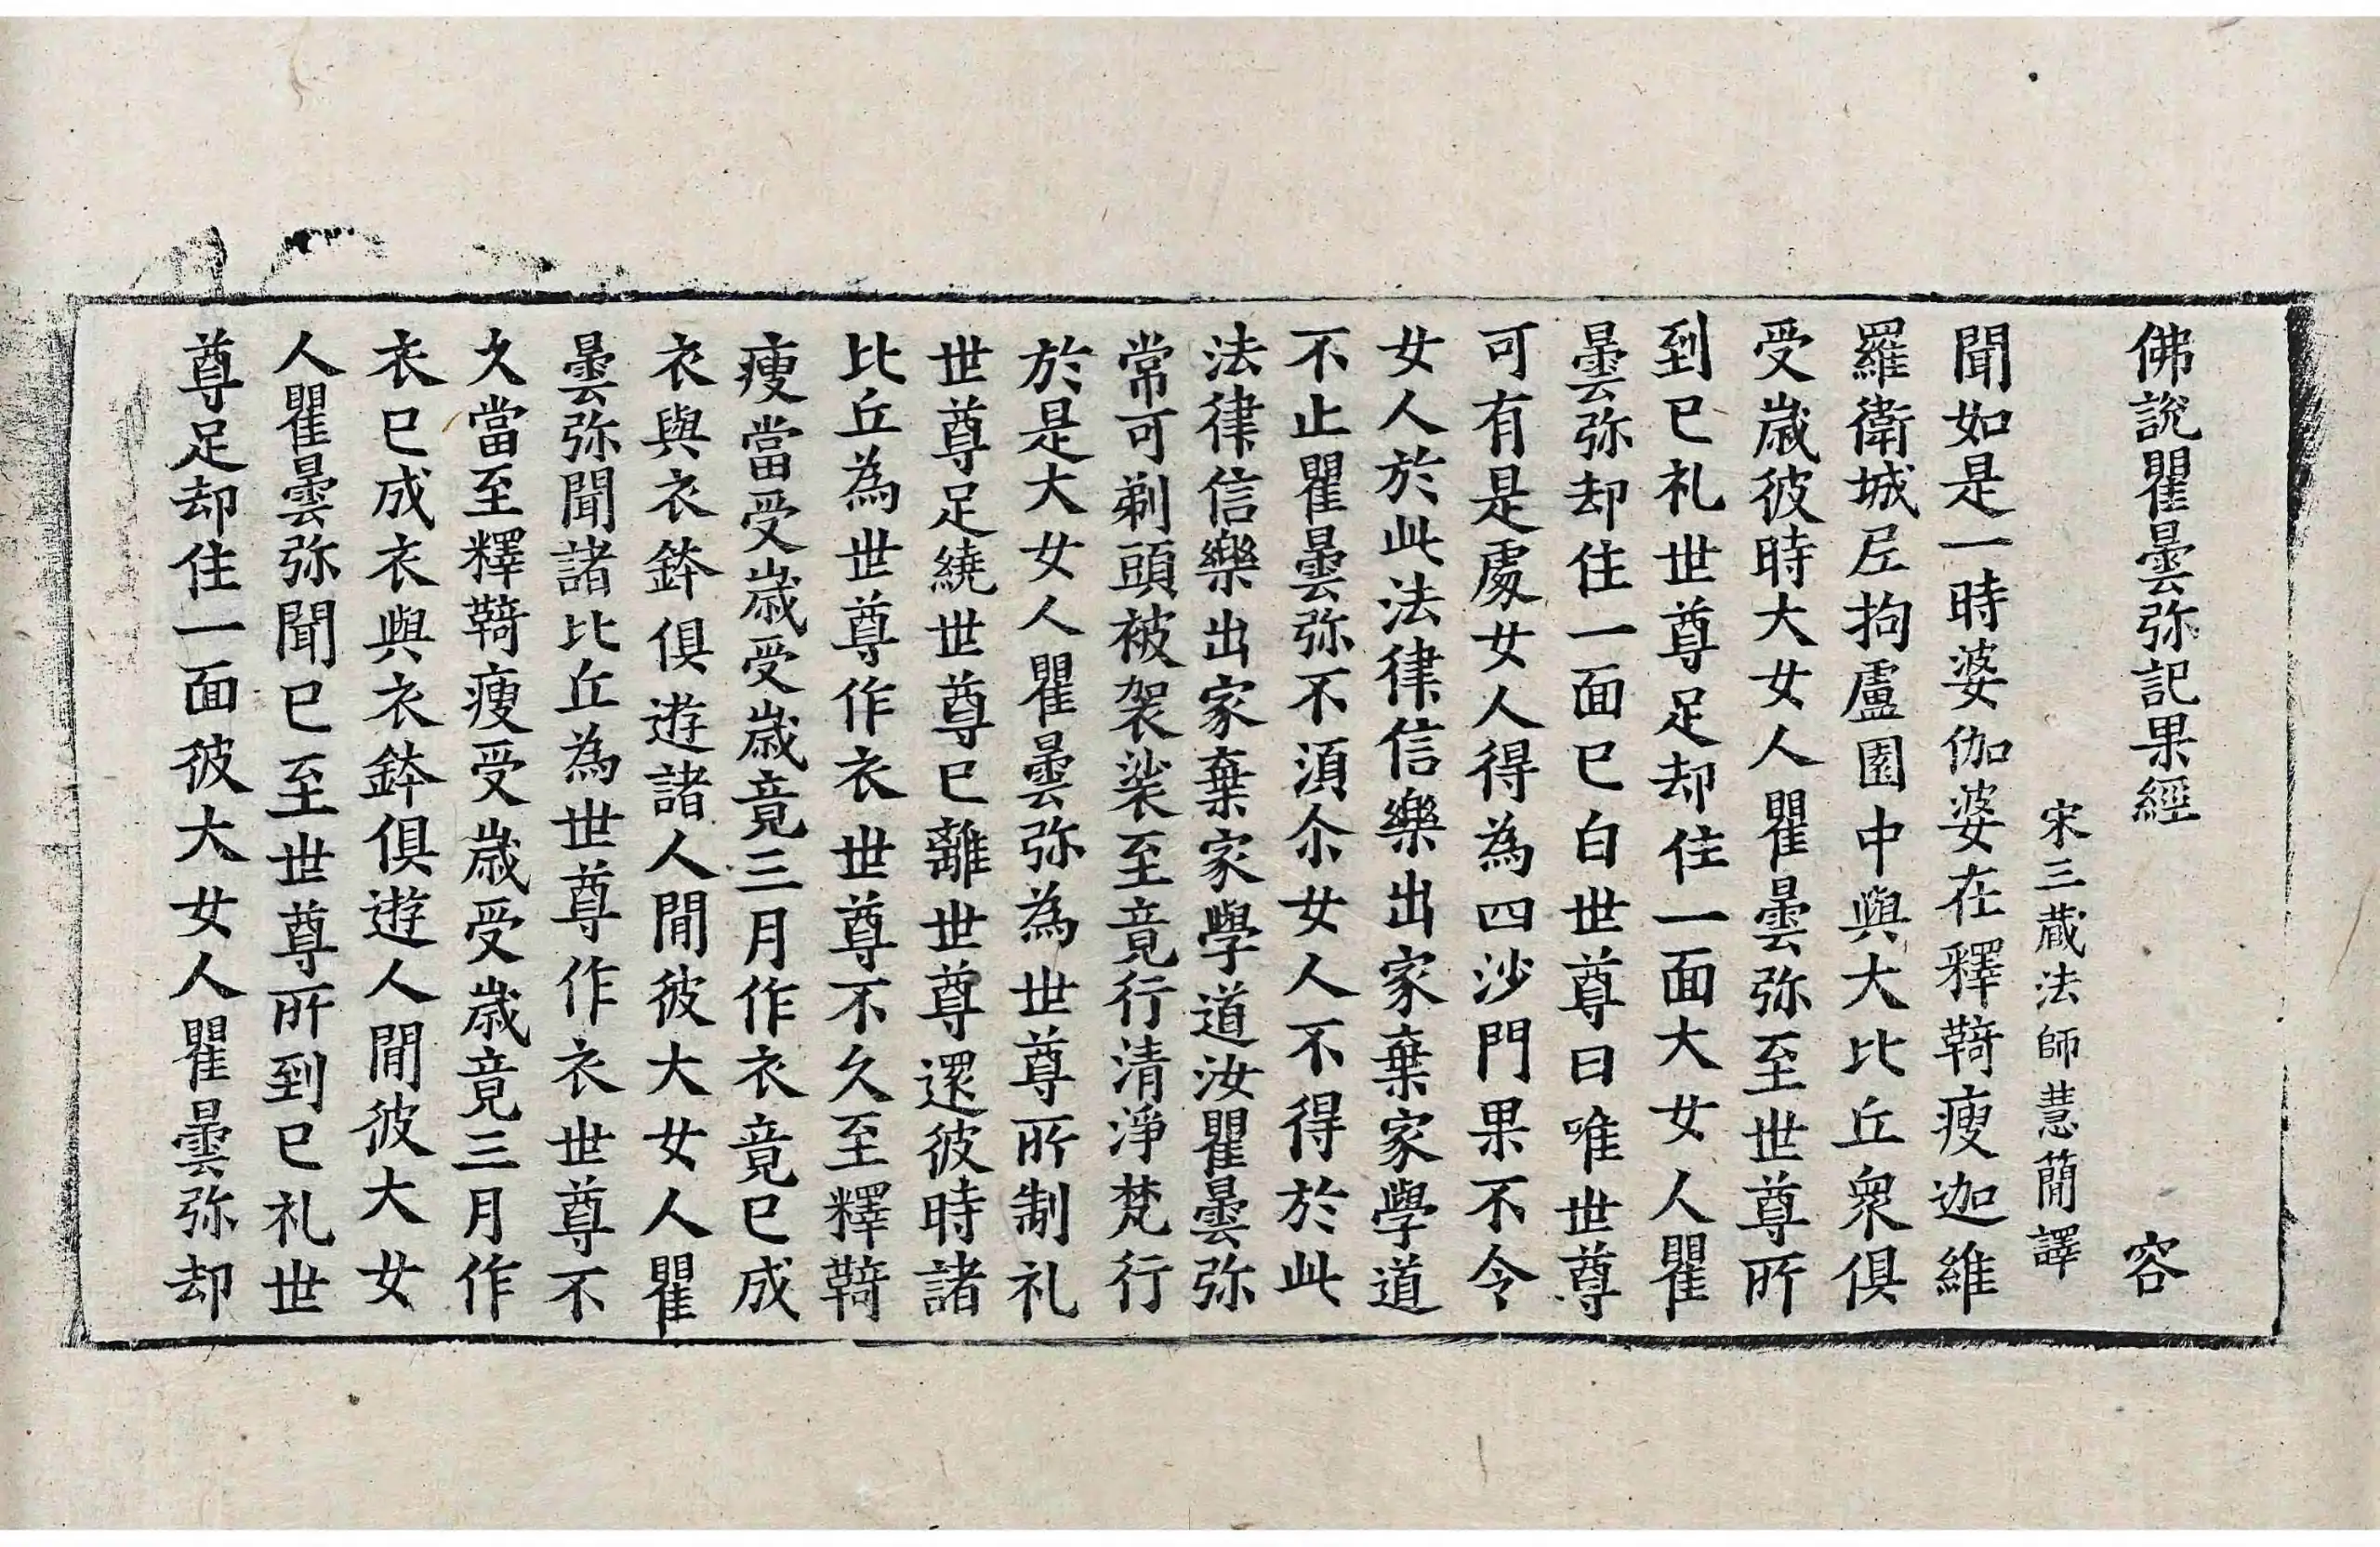 佛說瞿曇弥記果經 容
宋三藏法師慧蕳譯
聞如是一時婆伽婆在釋䩭瘦迦維
羅衛城𡰱拘盧園中與大比丘衆俱
受歲彼時大女人瞿曇弥至世尊所
到已礼世尊足却住一面大女人瞿
曇弥却住一面已白世尊曰唯世尊
可有是處女人得為四沙門果不令
女人於此法律信樂出家棄家學道
不止瞿曇弥不湏尒女人不得於此
法律信樂出家棄家學道汝瞿曇弥
常可剃頭被袈裟至竟行清淨梵行
於是大女人瞿曇弥為世尊所制礼
世尊足繞世尊已離世尊還彼時諸
比丘為世尊作衣世尊不久至釋䩭
瘦當受歲受歲竟三月作衣竟已成
衣與衣鉢俱遊諸人間彼大女人瞿
曇弥聞諸比丘為世尊作衣世尊不
久當至釋䩭瘦受歲受歲竟三月作
衣已成衣與衣鉢俱遊人間彼大女
人瞿曇弥聞已至世尊所到已礼世
尊足却住一面彼大女人瞿曇弥却